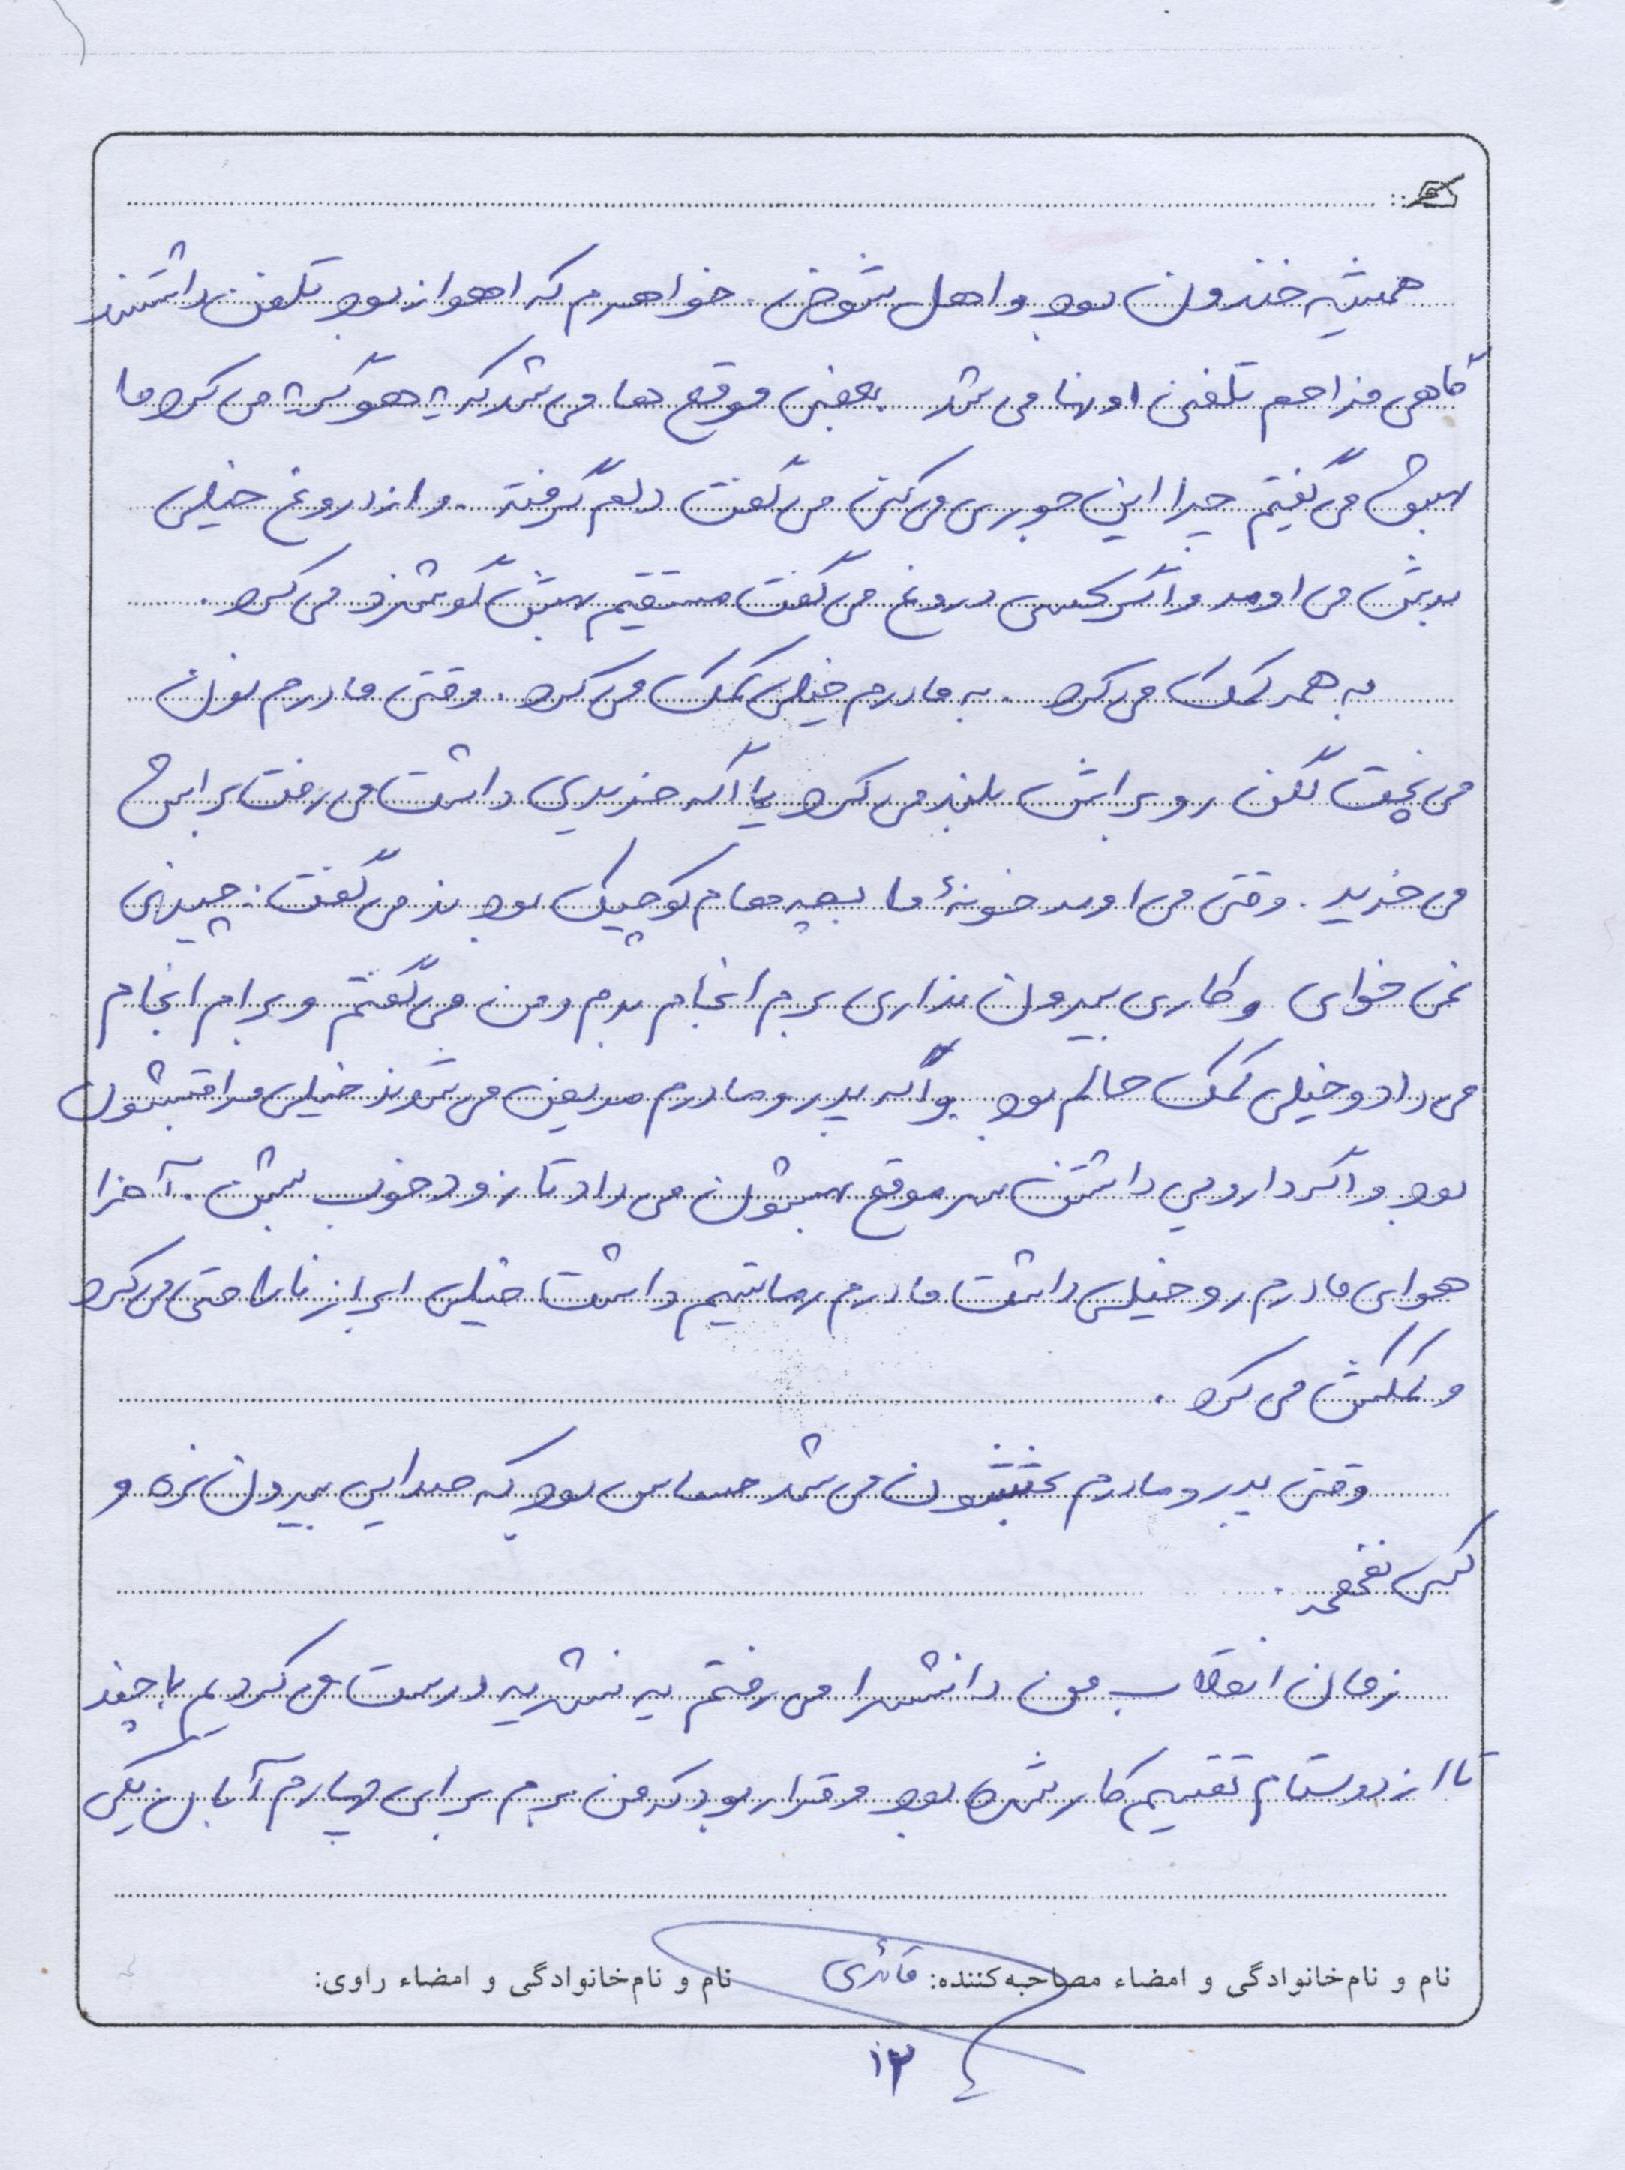 همیشه خندون بود و اهل شوخی. خواهرم که اهواز بود تلفن داشتند
گاهی مزاحم تلفنی اونها می شد بعضی موقع ها می شد که یه هو گریه می کرد ما
بهش می گفتیم چرا این جوری می کنی می گفت دلم گرفته. و از دروغ خیلی
بدش می اومد و اگر کسی دروغ می گفت مستقیم بهش گوشزد می کرد.
به همه کمک می کرد. به مادرم خیلی کمک می کرد. وقتی مادرم نون
می پخت لگن رو براش بلند می کرد یا اگه خریدی داشت می رفت براش
می خرید. وقتی می اومد خونهٔ ما بچه هام کوچیک بودند می گفت: چیزی
نمی خوای و کاری بیرون نداری برم انجام بدم و من می گفتم و برام انجام
می داد و خیلی کمک حالم بود و اگه پدر و مادرم مریض می شدند خیلی مراقبشون
بود و اگر دارویی داشتن سر موقع بهشون می داد تا زود خوب بشن. آخرا
هوای مادرم رو خیلی داشت مادرم رماتیسم داشت خیلی ابراز ناراحتی می کرد
و کمکش می کرد.
وقتی پدر و مادرم بحثشون می شد حساس بود که صدایی بیرون نره و
کسی نفهمه.
زمان انقلاب من دانشسرا می رفتم یه نشریه درست می کردیم با چند
تا از دوستام تقسیم کار شده بود و قرار بود که من برم برای چهارم آبان یکی
نام و نام‌خانوادگی و امضاء مصاحبه‌کننده: قائدی نام و نام‌خانوادگی و امضاء راوی:
۱۳